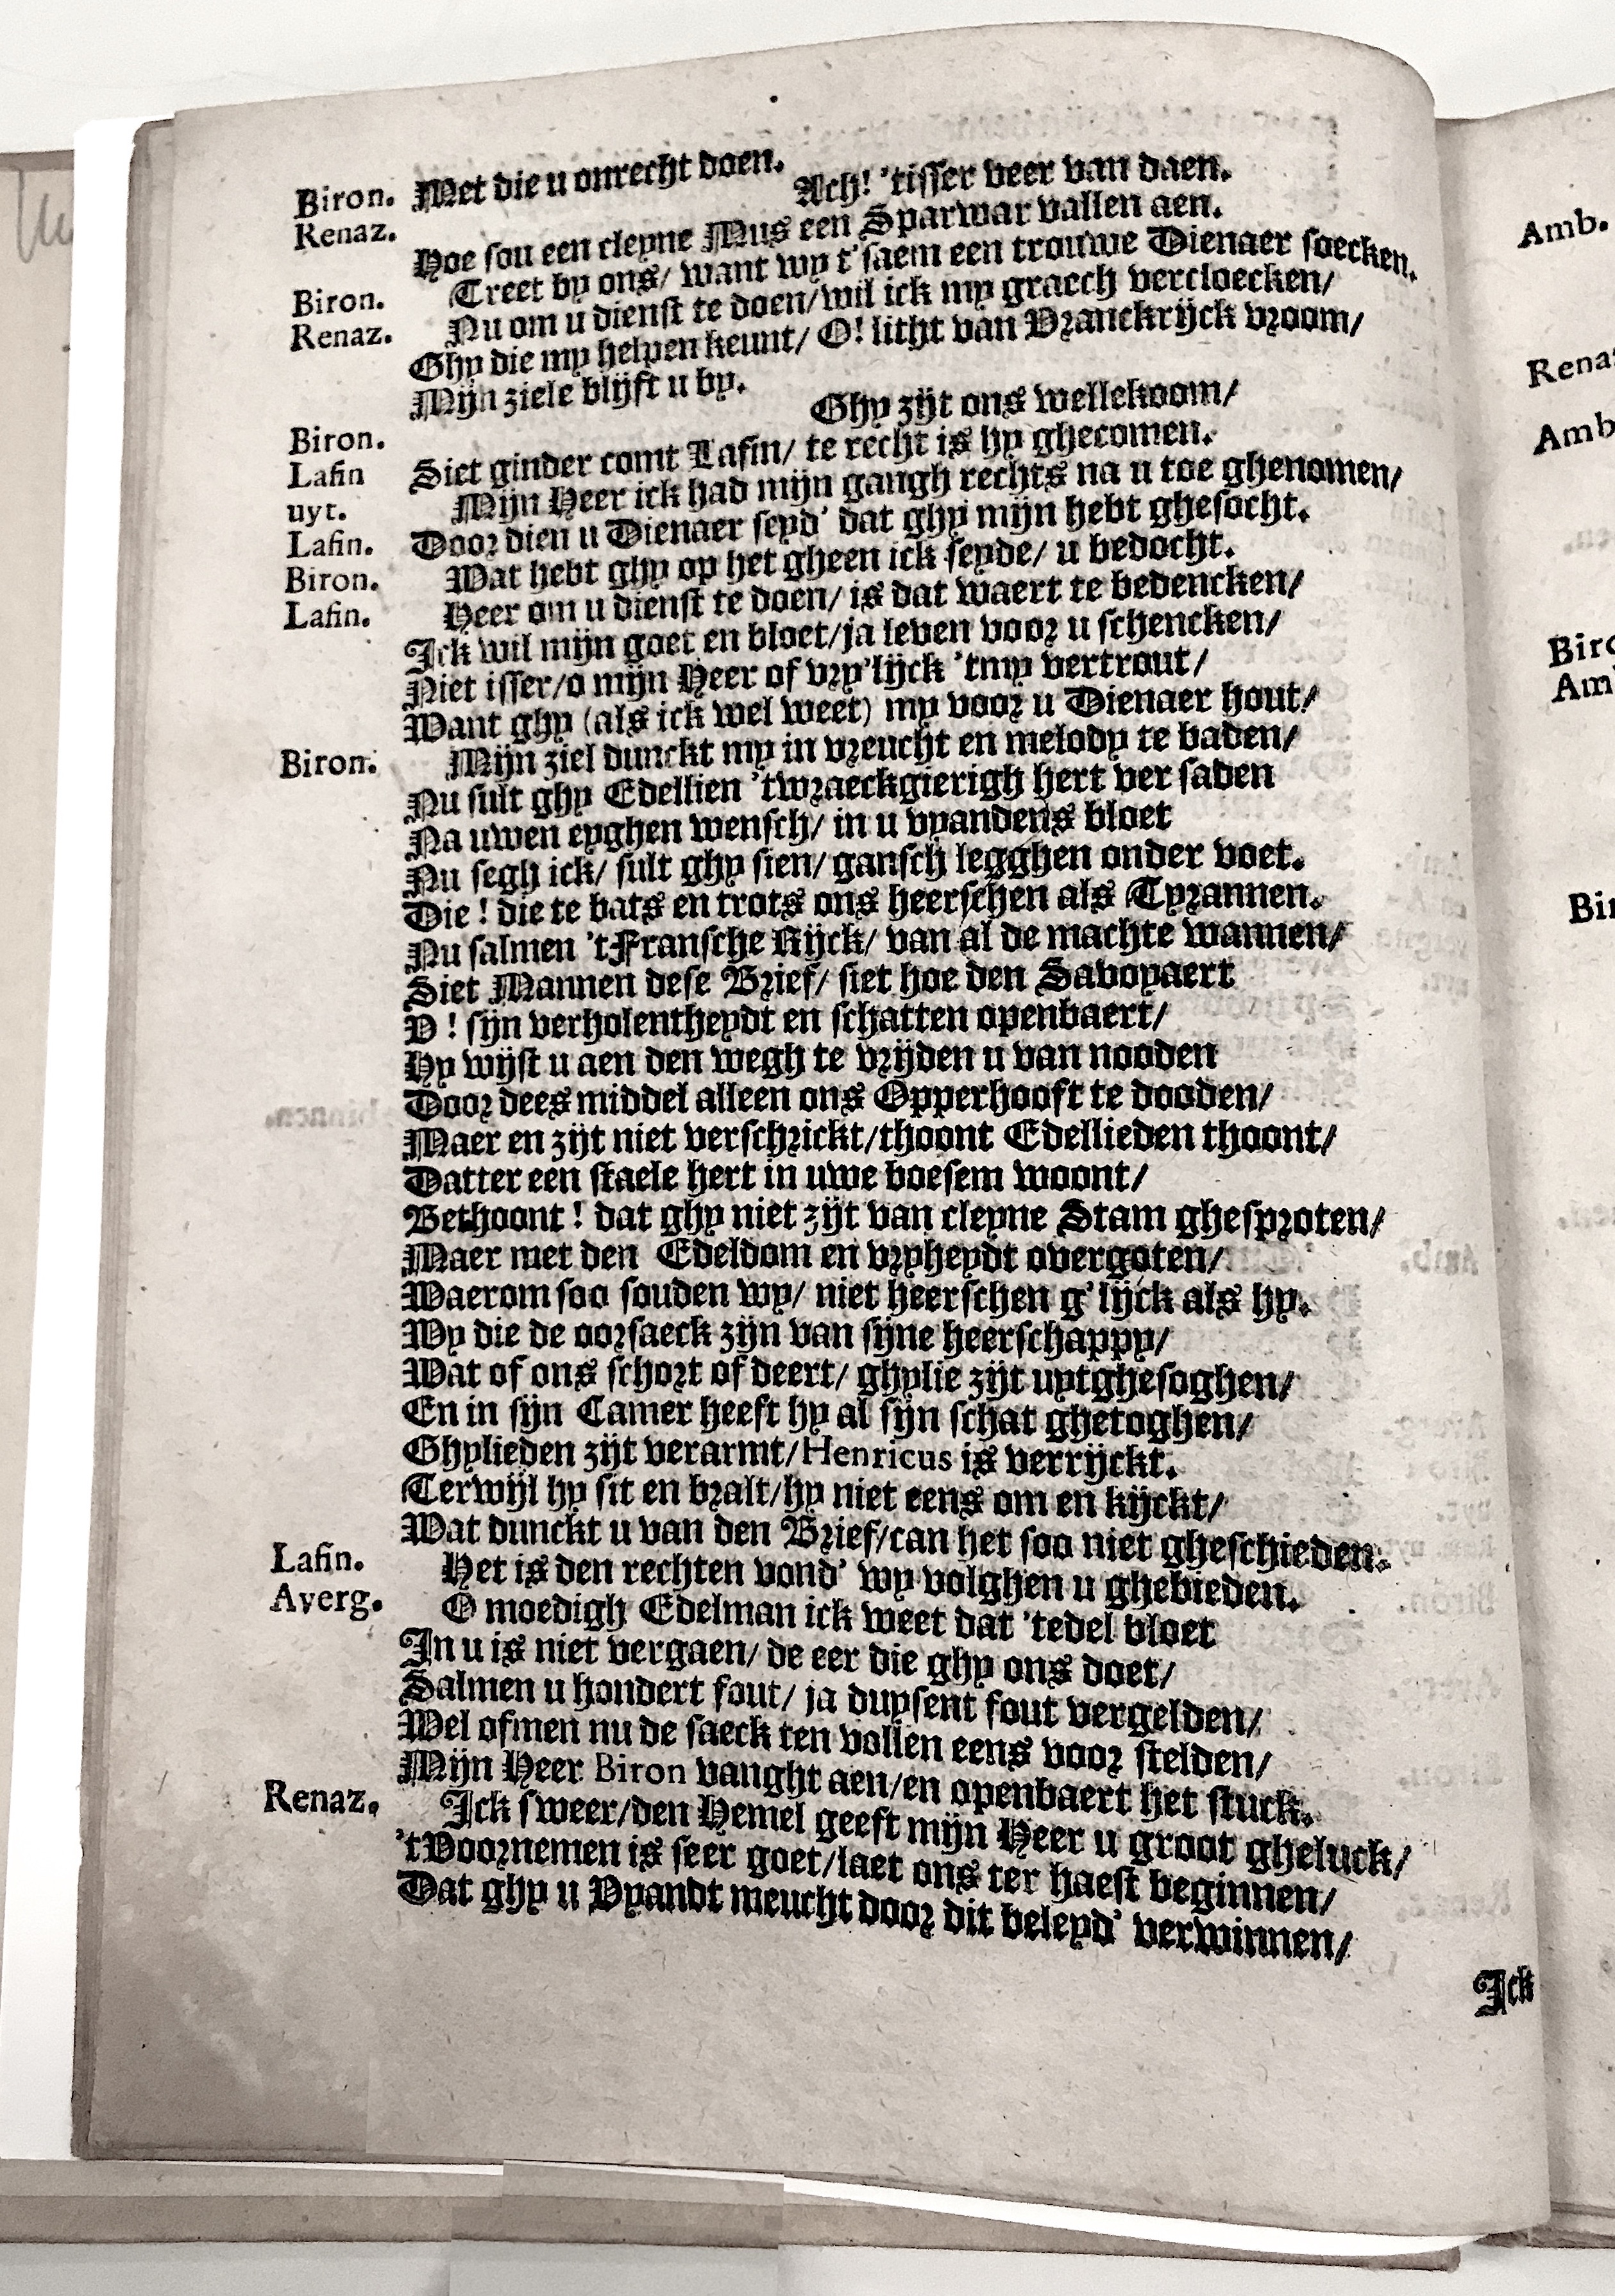 Met die u onrecht doen.
Biron. Ach! 'tisser veer van daen.
Renaz. Hoe sou een cleyne Mus een Sparwar vallen aen.
Biron. Treet by ons/ want wy t'saem een trouwe Dienaer soecken.
Renaz. Nu om u dienst te doen/wil ick my graech vercloecken/
Ghy die my helpen keunt/ O! litht van Vranckrijck vroom/
Mijn ziele blijft u by.
Biron. Ghy zijt ons wellekoom/
Lafin uyt. Siet ginder comt Lafin/ te recht is hy ghecomen.
Lafin. Mijn Heer ick had mijn gangh rechts na u toe ghenomen/
Door dien u Dienaer seyd' dat ghy mijn hebt ghesocht.
Biron. Wat hebt ghy op het gheen ick seyde/ u bedocht.
Lafin. Heer om u dienst te doen/ is dat waert te bedencken/
Ick wil mijn goet en bloet/ja leven voor u schencken/
Niet isser/o mijn Heer of vry'lijck 'tmy vertrout/
Want ghy (als ick wel weet) my voor u Dienaer hout/
Biron. Mijn ziel dunckt my in vreucht en melody te baden/
Nu sult ghy Edellien 'twraeckgierigh hert ver saden
Na uwen eyghen wensch/ in u vyandens bloet
Nu segh ick/ sult ghy sien/ gansch legghen onder voet.
Die ! die te bats en trots ons heerschen als Tyrannen.
Nu salmen 'tFransche Rijck/ van al de machte wannen/
Siet Mannen dese Brief/ siet hoe den Savoyaert
O ! sijn verholentheydt en schatten openbaert/
Hy wijst u aen den wegh te vrijden u van nooden
Door dees middel alleen ons Opperhooft te dooden/
Maer en zijt niet verschrickt/thoont Edellieden thoont/
Datter een staele hert in uwe boesem woont/
Bethoont ! dat ghy niet zijt van cleyne Stam ghesproten/
Maer met den Edeldom en vryheydt overgoten/
Waerom soo souden wy/ niet heerschen g'lijck als hy.
Wy die de oorsaeck zijn van sijne heerschappy/
Wat of ons schort of deert/ ghylie zijt uytghesoghen/
En in sijn Camer heeft hy al sijn schat ghetoghen/
Ghylieden zijt verarmt/Henricus is verrijckt.
Terwijl hy sit en bralt/hy niet eens om en kijckt/
Wat dunckt u van den Brief/can het soo niet gheschieden.
Lafin. Het is den rechten vond' wy volghen u ghebieden.
Averg. O moedigh Edelman ick weet dat 'tedel bloet
In u is niet vergaen/ de eer die ghy ons doet/
Salmen u hondert fout/ ja duysent fout vergelden/
Wel ofmen nu de saeck ten vollen eens voor stelden/
Mijn Heer Biron vanght aen/en openbaert het stuck.
Renaz. Ick sweer/den Hemel geeft mijn Heer u groot gheluck/
'tVoornemen is seer goet/laet ons ter haest beginnen/
Dat ghy u Vyandt meucht door dit beleyd' verwinnen/
Ick
Amb.
Amb
Biro
Am